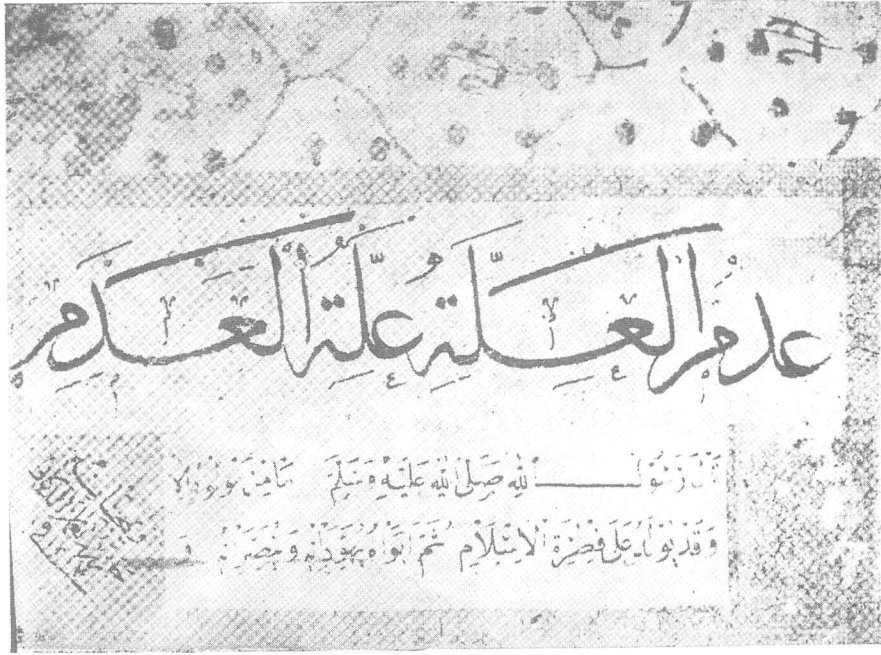 عدم العلة علة العدم
قال رسول الله صلى الله عليه وسلم ما من مولود الا
وقد يولد على فطرة الاسلام ثم ابواه يهودانه وينصرانه